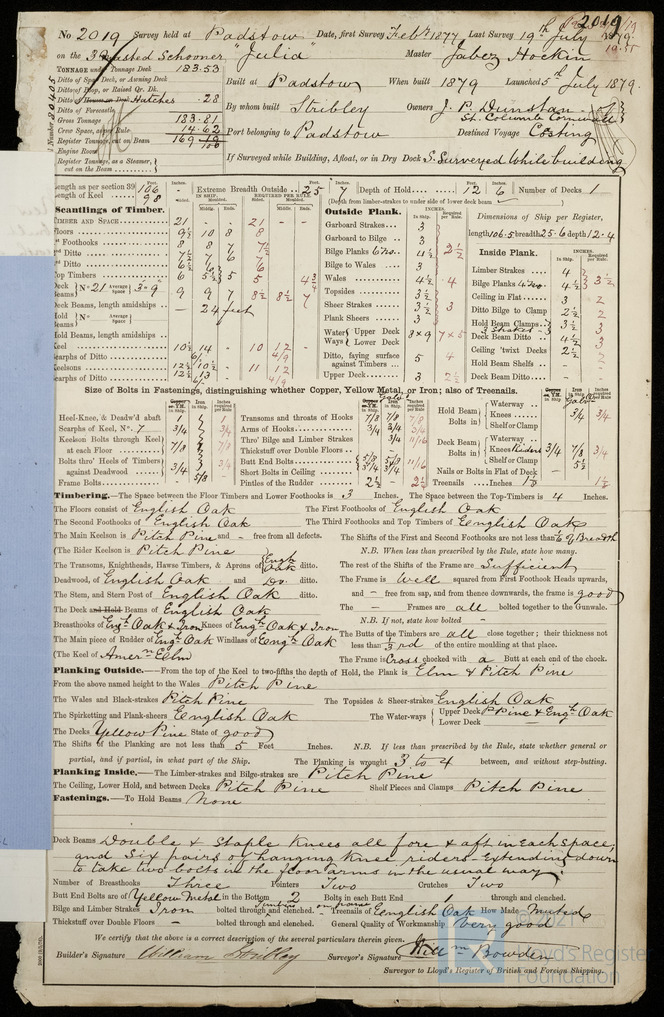 No 2019 Survey held at Padstow Date, first Survey Feby 1877 Last Survey 19th July 1879
2019
on the 3 Masted Schooner "Julia" Master Jabez Hockin
TONNAGE under Tonnage Deck 183.53
Ditto of Spar Deck, or Awning Deck
Ditto of Poop, or Raised Qr. Dk.
Ditto of Houses on Deck Hatches .28
Ditto of Forecastle
Gross Tonnage 183.81
Crew Space, as per Rule 14.62
Register Tonnage, cut on Beam 169 19/100
Engine Room
Register Tonnage, as a Steamer, cut on the Beam
Built at Padstow When built 1879 Launched 5th July 1879.
By whom built Stribley Owners J. P. Dunstan
St. Columb Cornwall
Port belonging to Padstow Destined Voyage Costing
If Surveyed while Building, Afloat, or in Dry Dock S. Surveyed while building
Length as per section 39 106
Length of Keel 98
Extreme Breadth Outside 25 7
Depth of Hold 12 6
Number of Decks 1
(Depth from limber-strakes to under side of lower deck beam
Scantlings of Timber.
TIMBER AND SPACE 21 - - 21 - -
Floors 9½ 10 8 8
1st Foothooks 8 8 7 7½
2nd Ditto
3rd Ditto
Top Timbers
Deck Beams N= 21 Average Space 3-9
Deck Beams, length amidships 24 feet
Hold Beams N= Average Space
Hold Beams, length amidships
Keel 10½ 14 - 10 12
Scarphs of Ditto
Keelsons
Scarphs of Ditto
Outside Plank.
Garboard Strakes 3
Garboard to Bilge 3
Bilge Planks 6 No. 4½ 2½
Bilge to Wales 3
Wales 4½ 4
Topsides 3½
Sheer Strakes 3½ 3
Plank Sheers 3
Water Ways Upper Deck 8 x 9 7 x 5
Lower Deck
Ditto, faying surface against Timbers 5 4
Upper Deck 3 2½
Dimensions of Ship per Register,
length 106.5 breadth 25.6 depth 12.4
Inside Plank.
Limber Strakes 4
Bilge Planks 4 No. 4½ 3½
Ceiling in Flat 3 2
Ditto Bilge to Clamp 2½ 2
Hold Beam Clamps 3½ 3
Deck Beam Ditto 4½ 3
Ceiling 'twixt Decks 2½ 2
Hold Beam Shelfs
Deck Beam Ditto
Size of Bolts in Fastenings, distinguishing whether Copper, Yellow Metal, or Iron; also of Treenails.
Heel-Knee, & Deadw'd abaft 1 1
Scarphs of Keel, No. 7 3/4 3/4
Keelson Bolts through Keel at each Floor 7/8 7/8
Bolts thro' Heels of Timbers against Deadwood 3/4
Frame Bolts 5/8
Transoms and throats of Hooks 7/8 7/8
Arms of Hooks 3/4 3/4
Thro' Bilge and Limber Strakes 3/4 11/16
Thickstuff over Double Floors
Butt End Bolts
Short Bolts in Ceiling
Pintles of the Rudder 2½ - 2½
Hold Beam Bolts in Waterway
Knees 3/4 3/4
Shelf or Clamp
Deck Beam Bolts in Waterway
Knees Riders 3/4 7/8 3/4
Shelf or Clamp
Nails or Bolts in Flat of Deck 5½
Treenails Inches 1⅛ 1⅛
Timbering.—The Space between the Floor Timbers and Lower Foothooks is 3 Inches. The Space between the Top-Timbers is 4 Inches.
The Floors consist of English Oak The First Foothooks of English Oak
The Second Foothooks of English Oak The Third Foothooks and Top Timbers of English Oak
The Main Keelson is Pitch Pine and - free from all defects. The Shifts of the First and Second Foothooks are not less than 1/6 of Breadth
(The Rider Keelson is Pitch Pine N.B. When less than prescribed by the Rule, state how many.
The Transoms, Knightheads, Hawse Timbers, & Aprons of Engh Oak ditto. The rest of the Shifts of the Frame are Sufficient
Deadwood, of English Oak and Do ditto. The Frame is Well squared from First Foothook Heads upwards,
The Stem, and Stern Post of English Oak ditto. and - free from sap, and from thence downwards, the frame is good
The Deck and Hold Beams of English Oak The - Frames are all bolted together to the Gunwale.
Breasthooks of Engh Oak & Iron Knees of Engh Oak & Iron N.B. If not, state how bolted -
The Main piece of Rudder of Engh Oak Windlass of Engh Oak The Butts of the Timbers are all close together; their thickness not less than 1/3rd of the entire moulding at that place.
(The Keel of Amern Elm The Frame is Cross chocked with a Butt at each end of the chock.
Planking Outside.—From the top of the Keel to two-fifths the depth of Hold, the Plank is Elm & Pitch Pine
From the above named height to the Wales Pitch Pine
The Wales and Black-strakes Pitch Pine The Topsides & Sheer-strakes English Oak
The Spirketting and Plank-sheers English Oak The Water-ways Upper Deck P. Pine & Engh Oak
Lower Deck
The Decks Yellow Pine State of good
The Shifts of the Planking are not less than 5 Feet Inches. N.B. If less than prescribed by the Rule, state whether general or
partial, and if partial, in what part of the Ship. The Planking is wrought 3 to 4 between, and without step-butting.
Planking Inside.—The Limber-strakes and Bilge-strakes are Pitch Pine
The Ceiling, Lower Hold, and between Decks Pitch Pine Shelf Pieces and Clamps Pitch Pine
Fastenings.—To Hold Beams None
Deck Beams Double & Staple Knees all fore & aft in Each space,
and Six pairs of hanging Knee riders Extending down
to take two bolts in the floor arms in the usual way.
Number of Breasthooks Three Pointers Two Crutches Two
Butt End Bolts are of Yellow Metal in the Bottom 2 Bolts in each Butt End 1 through and clenched.
Bilge and Limber Strakes Iron bolted through and clenched. Treenails of English Oak How Made Mutes
Thickstuff over Double Floors - bolted through and clenched. General Quality of Workmanship Very good
We certify that the above is a correct description of the several particulars therein given.
Builder's Signature William Stribley Surveyor's Signature Willm Bowden
Surveyor to Lloyd's Register of British and Foreign Shipping.
© 2021
Lloyd's Register
Foundation